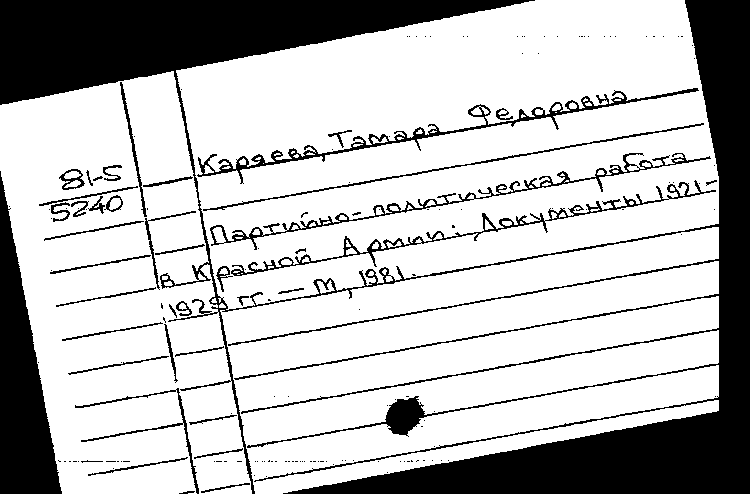 Каряева, Тамара Федоровна
81-5
5240
Партийно-политическая работа
в Красной Армии: Документы 1921-
1929 гг. — М, 1981.